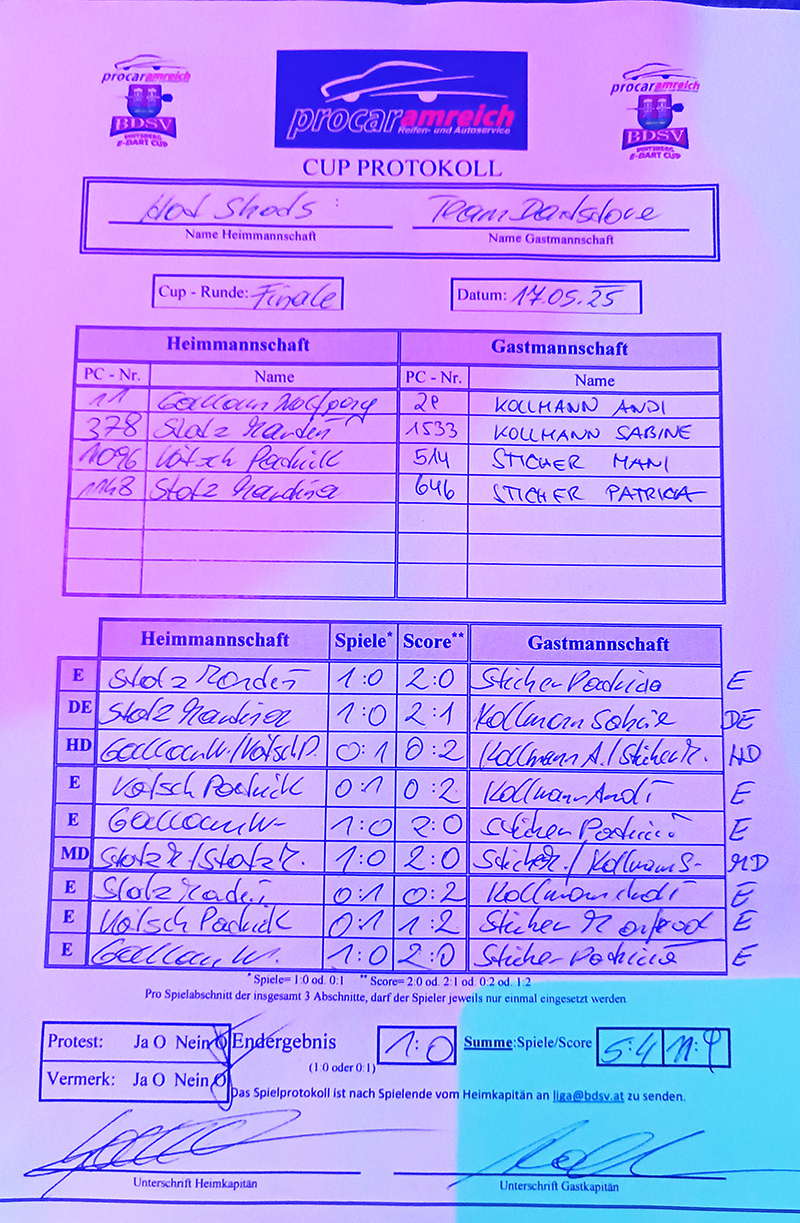 procaramreich
BDSV
E-DART CUP
procaramreich
Reifen- und Autoservice
procaramreich
BDSV
E-DART CUP
CUP PROTOKOLL
Hot Shots Team Dartstore
Name Heimmannschaft Name Gastmannschaft
Cup - Runde: Finale Datum: 17.05.25
Heimmannschaft Gastmannschaft
PC - Nr. Name PC - Nr. Name
11 Wolfgang KOLLMANN ANDI
378 Stolz 1533 KOLLMANN SABINE
1096 Patrick 514 STICHER MANI
1148 Stolz Martina 646 STICHER PATRICIA
Heimmannschaft Spiele* Score** Gastmannschaft
E Stolz 1:0 2:0 Sticher Patricia E
DE Stolz Martina 1:0 2:1 Kollmann Sabine DE
HD 0:1 0:2 Kollmann A./Sticher M. HD
E Patrick 0:1 0:2 Kollmann Andi E
E 1:0 2:0 Sticher E
MD Stolz M/Stolz M. 1:0 2:0 Kollmann S- MD
E Stolz 0:1 0:2 Kollmann Andi E
E Patrick 0:1 1:2 Sticher Manfred E
E W. 1:0 2:0 Sticher E
* Spiele= 1:0 od. 0:1 ** Score= 2:0 od. 2:1 od. 0:2 od. 1:2
Pro Spielabschnitt der insgesamt 3 Abschnitte, darf der Spieler jeweils nur einmal eingesetzt werden
Protest: Ja O Nein O Endergebnis 1:0 Summe:Spiele/Score 5:4 11:9
(1:0 oder 0:1)
Vermerk: Ja O Nein O
Das Spielprotokoll ist nach Spielende vom Heimkapitän an liga@bdsv.at zu senden.
Unterschrift Heimkapitän Unterschrift Gastkapitän